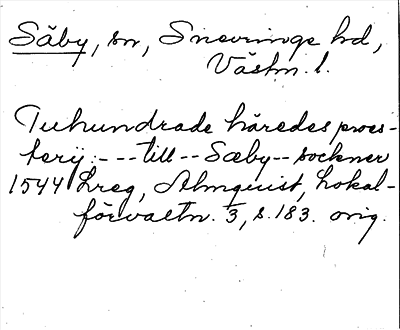 Säby, sn, Snevringe hd,
Västm. l.
Tuhundrade häredes proes-
terij: --- till -- Sæby -- sockner
1544 Lreg, Almquist, Lokal-
förvaltn. 3, s. 183. orig.